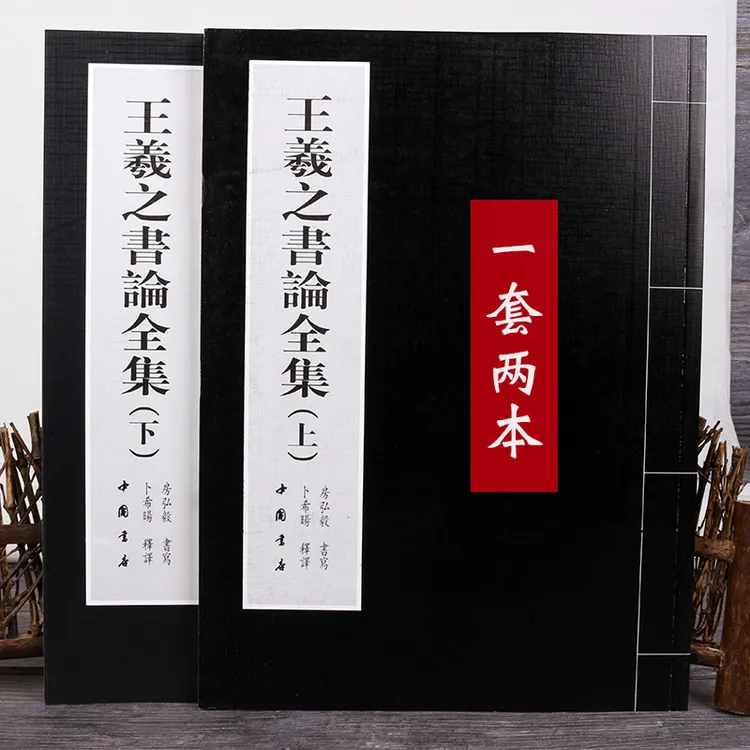 王羲之書論全集(下)
房弘毅 書寫
卜希暘 釋譯
中國書店
王羲之書論全集(上)
房弘毅 書寫
卜希暘 釋譯
中國書店
一套两本